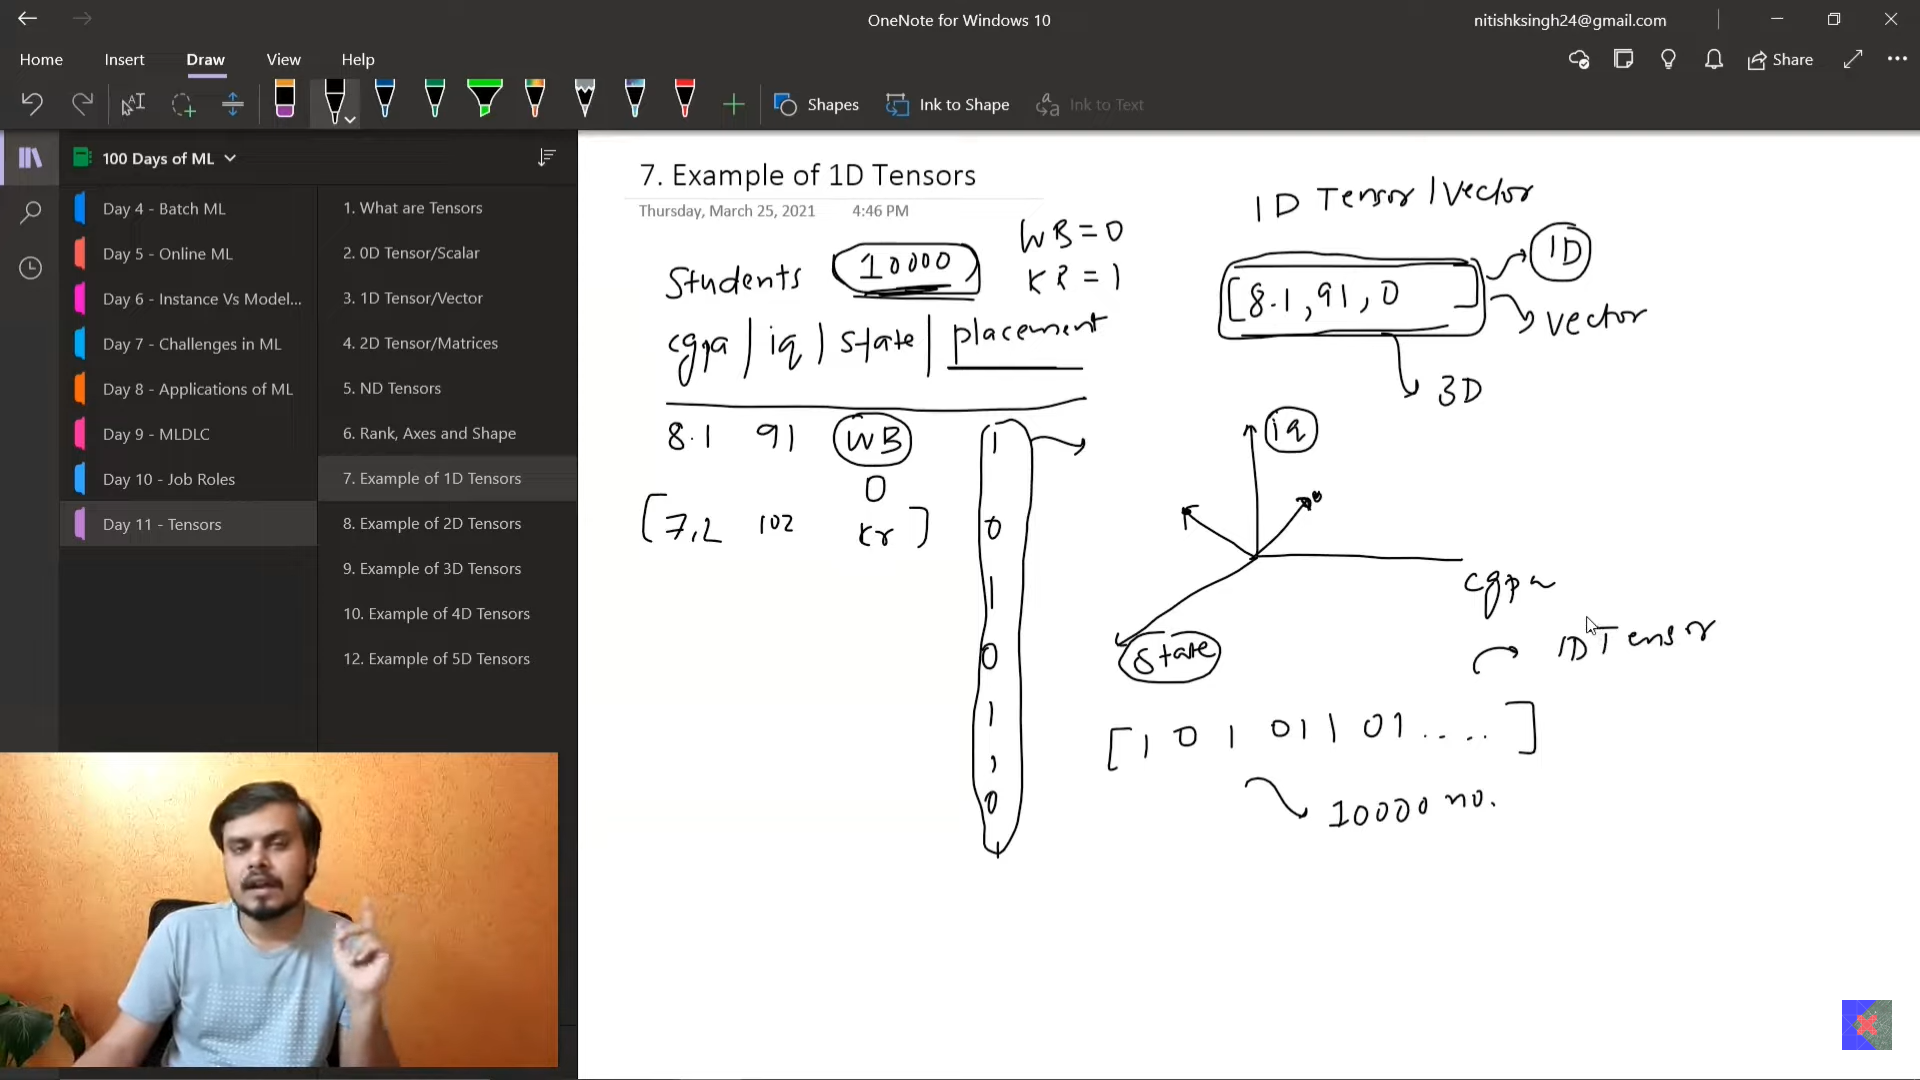 OneNote for Windows 10
nitishksingh24@gmail.com
Home Insert Draw View Help
Share
Shapes Ink to Shape Ink to Text
100 Days of ML
Day 4 - Batch ML
Day 5 - Online ML
Day 6 - Instance Vs Model...
Day 7 - Challenges in ML
Day 8 - Applications of ML
Day 9 - MLDLC
Day 10 - Job Roles
Day 11 - Tensors
1. What are Tensors
2. 0D Tensor/Scalar
3. 1D Tensor/Vector
4. 2D Tensor/Matrices
5. ND Tensors
6. Rank, Axes and Shape
7. Example of 1D Tensors
8. Example of 2D Tensors
9. Example of 3D Tensors
10. Example of 4D Tensors
12. Example of 5D Tensors
7. Example of 1D Tensors
Thursday, March 25, 2021 4:46 PM
WB = 0
Students 10000 KR = 1
cgpa | iq | state | placement
8.1 91 WB 1
0
[7.2 102 Kr] 0
1
0
1
,
0
1D Tensor / Vector
[8.1, 91, 0 ] 1D
vector
3D
iq
cgpa
state
1D Tensor
[1 0 1 0 1 1 0 1 . . . . ]
10000 no.